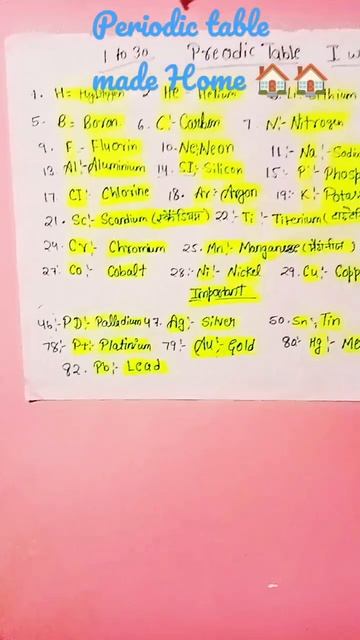 Periodic table
1 to 30 Preodic Table I w
made Home 🏠🏠
1. H= Hydrogen 2. He= Helium 3. Li Lithium
5. B= Boron 6. C:- Carbon 7. N:- Nitrogen
9. F= Fluorin 10. Ne:Neon 11:- Na:- Sodi
13. Al:- Aluminium 14. SI:- Silicon 15:- P:- Phosp
17. CI:- Chlorine 18. Ar:- Argon 19:- K:- Potas
21. Sc:- Scardium ( 22:- Ti:- Titerium (
24. Cr:- Chromium 25. Mn:- Manganese (मैंगनीज)
27. Co:- Cobalt 28:- Ni:- Nickel 29. Cu:- Copp
Important
46:- PD:- Palladium 47. Ag:- Silver 50. Sn:, Tin
78:- Pt:- Platinium 79:- Au:- Gold 80:- Hg:- Me
82. Pb:- Lead